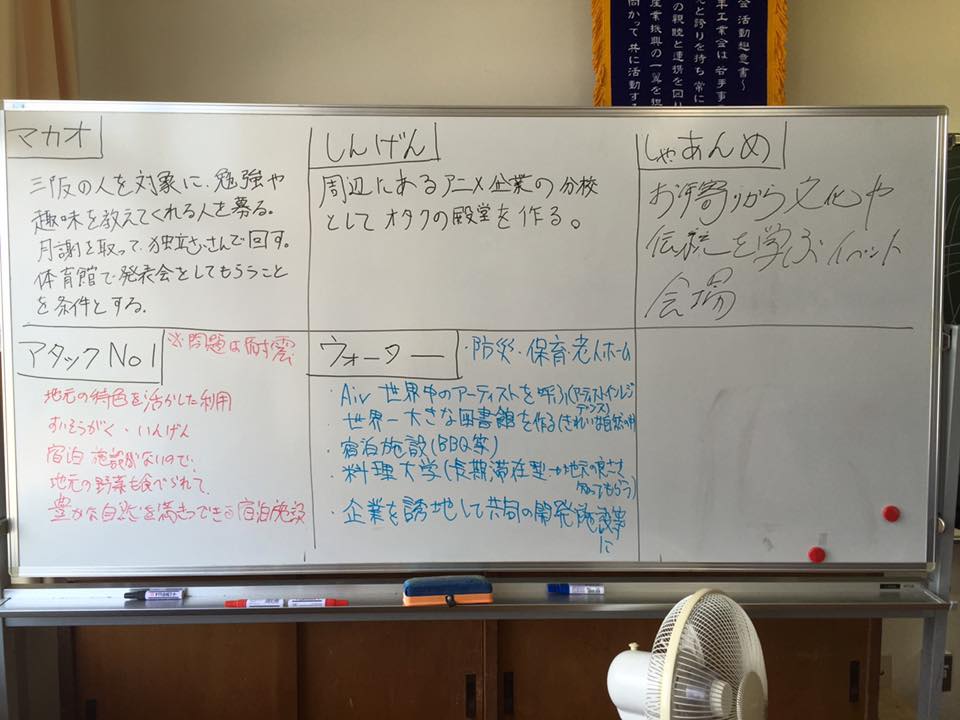 会活動趣意書〜
工業会は若手事
と誇りを持ち常に
の親睦と連携を図り
産業振興の一翼を担
向かって共に活動する
マカオ
三阪の人を対象に、勉強や
趣味を教えてくれる人を募る。
月謝を取って、独立さいさんで回す。
体育館で発表会をしてもらうこと
を条件とする。
しんげん
周辺にあるアニメ企業の分校
としてオタクの殿堂を作る。
しゃあんめ
お年寄りから文化や
伝統を学ぶイベント
会場
アタックNo1
※問題は耐震
地元の特色を活かした利用
すいそうがく・いんげん
宿泊施設がないので、
地元の野菜も食べられて、
豊かな自然を満きつできる宿泊施設
ウォーター
・防災・保育・老人ホーム
・Air 世界中のアーティストを呼ぶ(アーティストインレジデンス)
・世界一大きな図書館を作る(きれいな自然の中
・宿泊施設(BBQ等)
・料理大学(長期滞在型→地元の良さを
知ってもらう)
・企業を誘地して共同の開発施設等
に